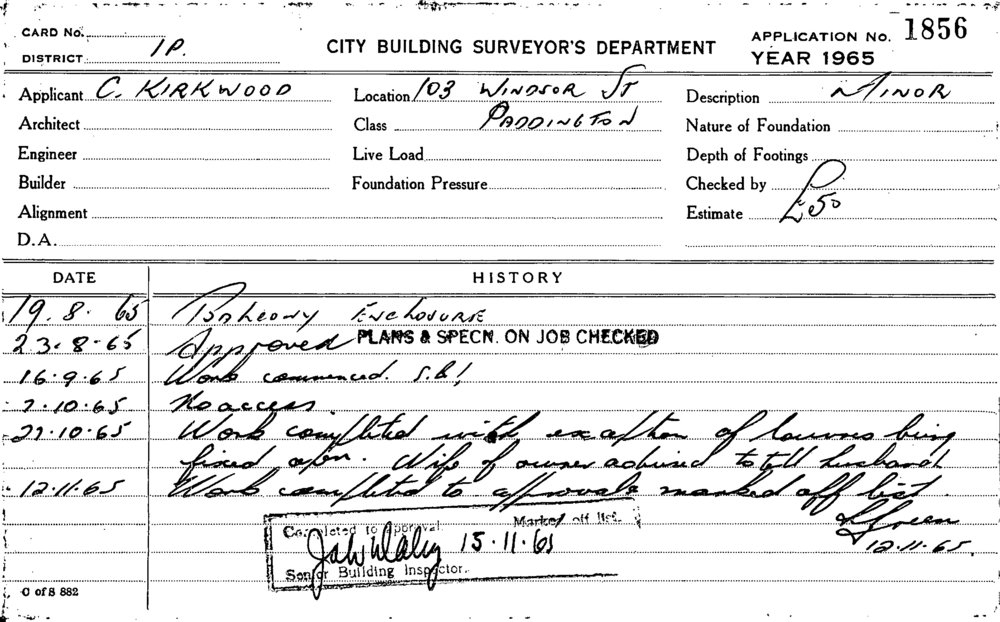 CARD No.
DISTRICT 1P.
CITY BUILDING SURVEYOR'S DEPARTMENT
APPLICATION No. 1856
YEAR 1965
Applicant C. KIRKWOOD Location 103 WINDSOR ST Description MINOR
Architect Class PADDINGTON Nature of Foundation
Engineer Live Load Depth of Footings
Builder Foundation Pressure Checked by
Alignment Estimate £50
D.A.
DATE HISTORY
19.8.65 Balcony Enclosure
23.8.65 Approved PLANS & SPECN. ON JOB CHECKED
16.9.65 Work commenced.
7.10.65 No access.
27.10.65 Work completed with exception of louvres being
fixed open. Wife of owner advised to tell husband
12.11.65 Work completed to approval marked off list.
12.11.65.
Completed to approval Marked off list.
15.11.65
Senior Building Inspector.
C of S 882